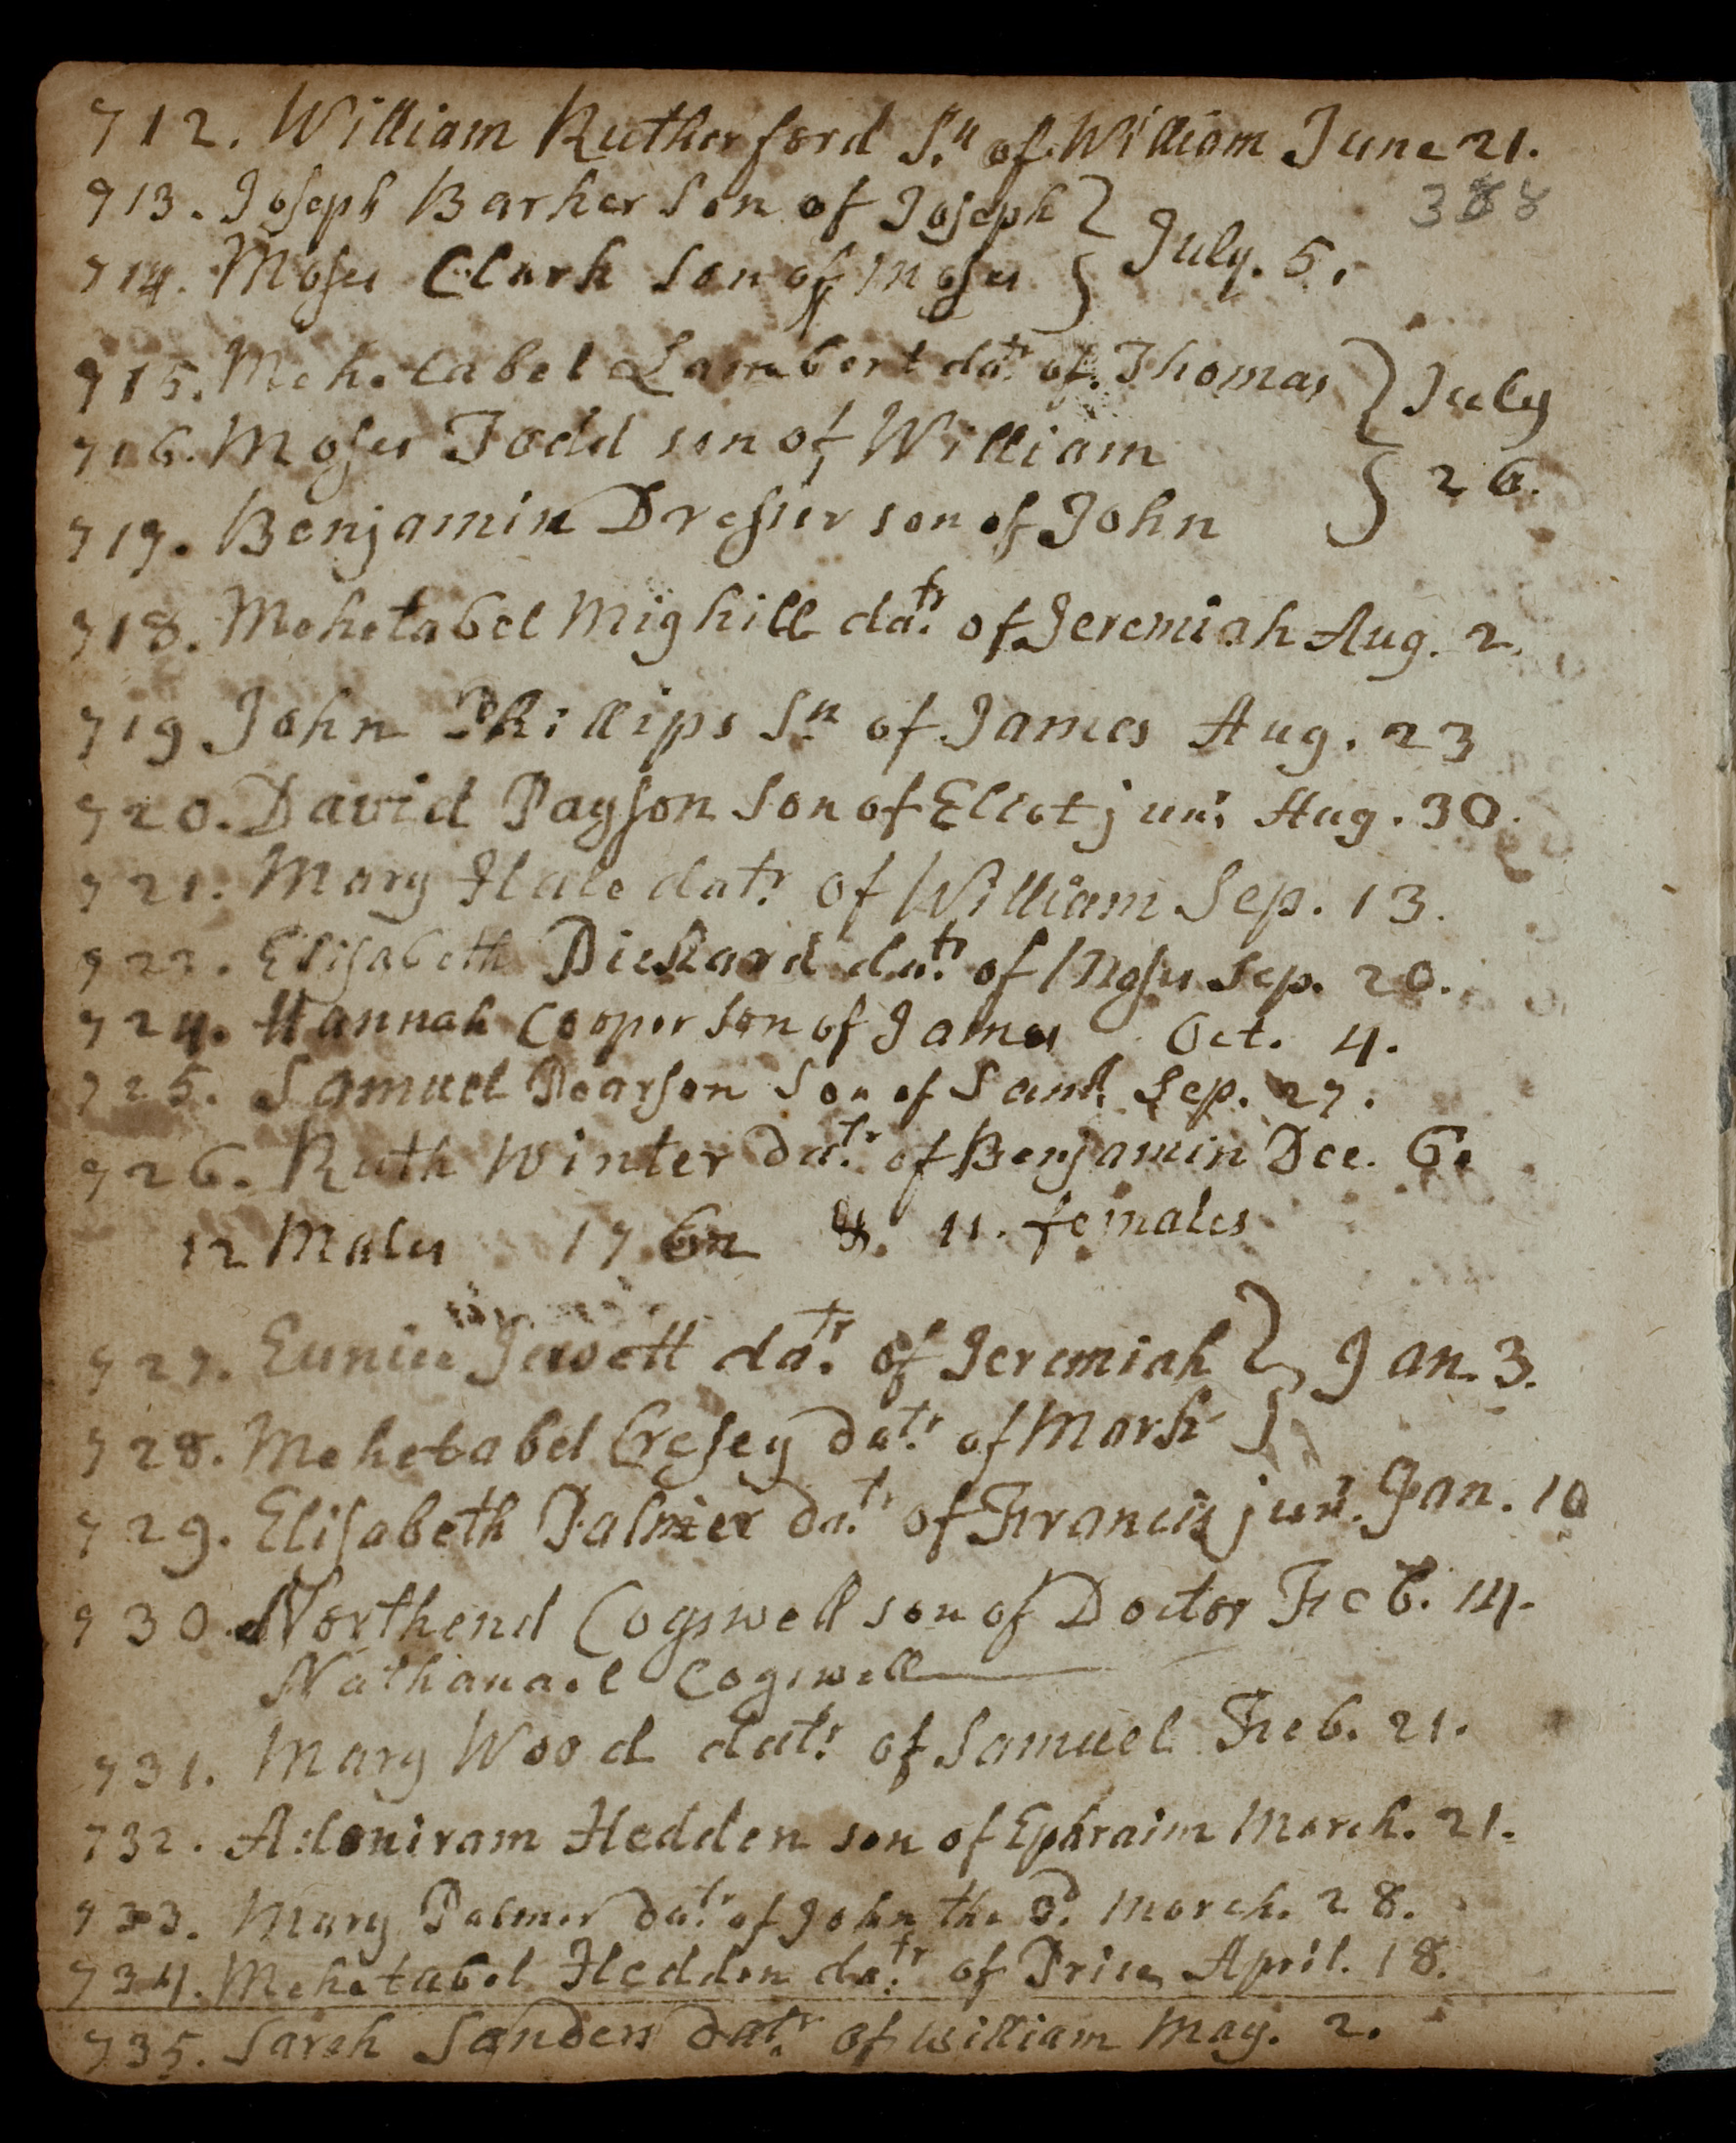 712. William Rutherford S.n of William June 21.
388
713. Joseph Barker Son of Joseph } July. 5.
714. Moses Clark Son of Moses
715. Mehetabel Lambert datr. of Thomas } July
716. Moses Todd son of William
26.
717. Benjamin Dresser son of John
718. Mehetabel Mighill datr. of Jeremiah Aug. 2.
719 John Phillips Sn of James Aug. 23
720. David Payson Son of Eliot junr. Aug. 30.
721. Mary Hale datr. of William Sep. 13.
722. Elisabeth Pickard datr. of Moses Sep. 20.
724. Hannah Cooper son of James Oct. 4.
725. Samuel Pearson Son of Saml. Sep. 27.
726. Ruth Winter datr. of Benjamin Dec. 6.
12 Males 176 &. 11. females
727. Eunice Jewett datr. of Jeremiah } Jan. 3.
728. Mehetabel Cresey datr. of Mark
729. Elisabeth Palmer datr. of Francis junr. Jan. 10
730. Northend Cogswell son of Doctor Feb. 14.
Nathanael Cogswell
731. Mary Wood datr. of Samuel Feb. 21.
732. Adoniram Hedden son of Ephraim March. 21.
733. Mary Palmer datr. of John the 3d. March. 28.
734. Mehetabel Hedden datr. of Price April. 18.
735. Sarah Sanders datr. of William May. 2.